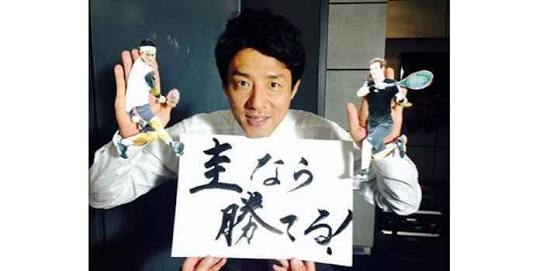 圭なら
勝てる!